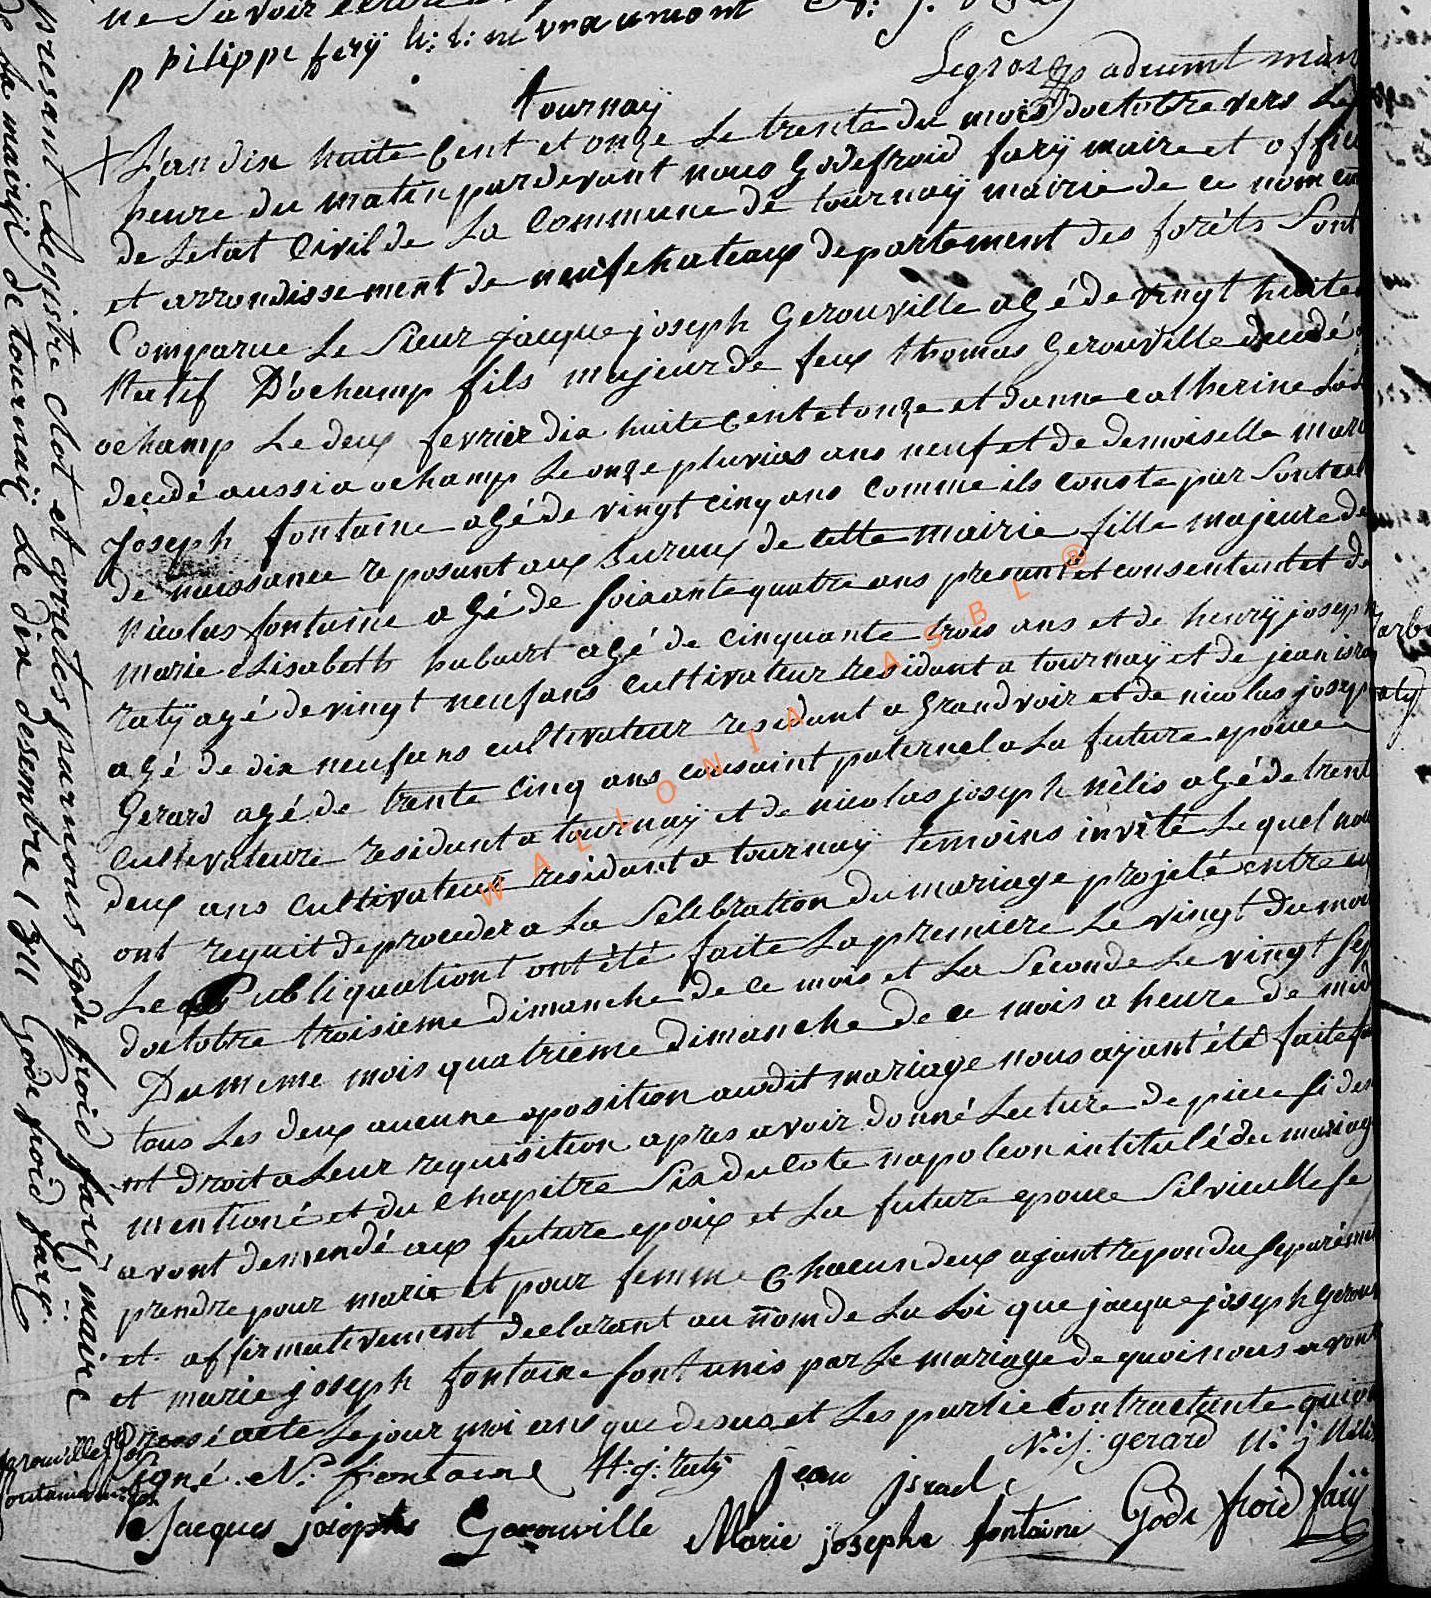 ne Savoir
philippe ferÿ h: t: ne vraumont N: J.
Legros adeumt
tournaÿ
L'an dix huite Cent et onze Le trente du mois doctobre vers Les
heure du matin pardevant nous Godefroid farÿ maire et offici
de Letat Civil de La Commune de tournaÿ mairie de ce nom
et arrondissement de neufchateaux departement des forêts Sont
Comparue Le Sieur jacque joseph Gerouville agé de vingt huite
Natif D'ochamp fils majeur de feux thomas Gerouville decedé
ochamp Le deux fevrier dix huite Cent et onze et danne catherine
decedé aussi a ochamp Le onze pluvios ans neuf et de demoiselle mari
joseph fontaine agé de vingt cinq ans comme ils conste par Sont
de naissance reposant aux buraux de cette mairie fille majeure de
Nicolas fontaine agé de soixante quatre ans presant et consentent et de
marie elisabeth hubart agé de cinquante trois ans et de henrÿ joseph
ratÿ agé de vingt neuf ans cultivateur residant a tournaÿ et de jean isra
agé de dix neuf ans cultivateur residant a Grandvoir et de nicolas josep
Gerard agé de trente cinq ans cousaint paternel a La future epouce
cultivateure residant a tournaÿ et de nicolas joseph nélis agé de trent
deux ans cultivateur residant a tournaÿ temoins invité Le quel nou
ont requit de proceder a La Sélébration du mariage projeté entre
Les Publiquationt ont été faite La premiere Le vingt du moi
doctobre troisieme dimanche de ce mois et La Seconde Le vingt Sep
Du meme mois quatrieme dimanche de ce mois a heure de mid
tous Les deux aucune oposition audit mariage nous ajant été faite
nt droit a Leur requisition apres avoir donné Lecture de piece si des
mentioné et du Chapitre Six du Cote napoleon intitulé du mariag
avont demendé aux future epoix et La future epouce Sil vieulle se
prendre pour marie et pour femme Chacun deux ajant repondu Separéme
et affirmativement declarant au nom de La Loi que jacque joseph Gerouv
et marie joseph fontaine sont unis par Le mariage de quoi nous avont
acte Le jour moi ans que desus et Les partie Contractante qui
signé N: fontaine H: j: ratÿ jean israel N: j: gerard n: j Nélis
Jacques joseph Gerouville Marie josephe fontaine Gode froid farÿ
presant Registre Clot et arretes par nous Gode froid farÿ maire
de la mairie de tournaÿ Le dix desembre 1811 Gode froid farÿ
WALLONIA ASBL ®